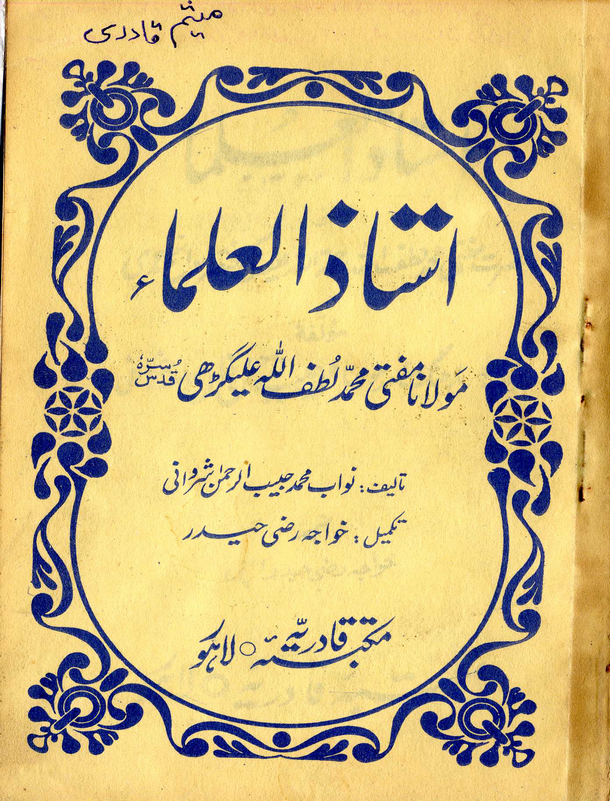 میثم قادری
استاذ العلماء
مولانا مفتی محمد لُطف اللہ علیگڑھی قُدّس سرّہٗ
تالیف : نواب محمد حبیب الرحمن شروانی
تکمیل : خواجہ رضی حیدر
مکتبہ قادریہ ○ لاہور